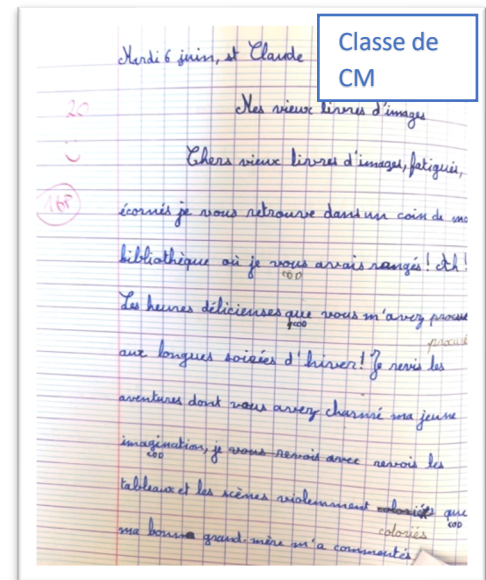 Classe de
CM
Mardi 6 juin, st Claude
20
Mes vieux livres d'images
Chers vieux livres d'images, fatigués,
écornés je vous retrouve dans un coin de ma
bibliothèque où je vous avais rangés! Ah!
COD
Les heures délicieuses que vous m'avez
COD
aux longues soirées d'hiver! Je revis les
aventures dont vous avez charmé ma jeune
imagination, je vous revois avec revois les
COD
tableaux et les scènes violemment coloriés que
COD
coloriés
ma bonne grand-mère m'a commentés.